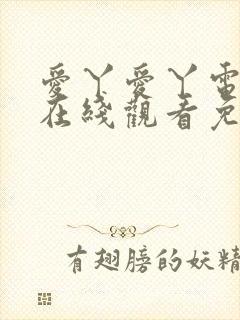 愛丫愛丫電
在綫觀看免
有翅膀的妖精